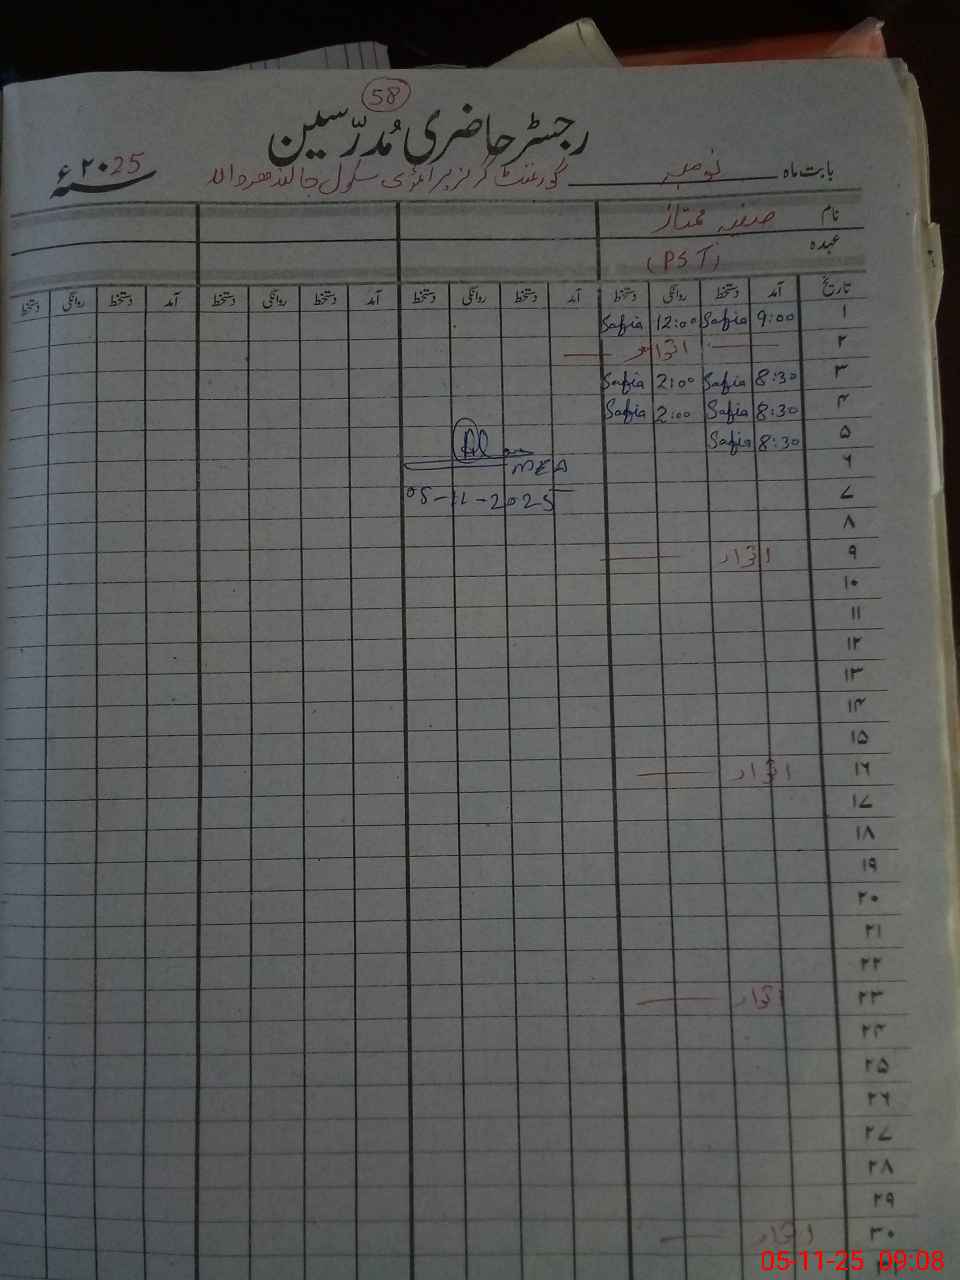 58
رجسٹر حاضری مُدرّسین
بابت ماہ نومبر گورنمنٹ گرلز پرائمری سکول سنہ ۲۰25ء
نام صفیہ ممتاز
عہدہ (PST)
تاریخ آمد دستخط روانگی دستخط آمد دستخط روانگی دستخط آمد دستخط روانگی دستخط آمد دستخط روانگی دستخط
۱ 9:00 Safia 12:00 Safia
۲ اتوار
۳ 8:30 Safia 2:00 Safia
۴ 8:30 Safia 2:00 Safia
۵ 8:30 Safia
۶ MEA
۷ 05-11-2025
۸
۹ اتوار
۱۰
۱۱
۱۲
۱۳
۱۴
۱۵
۱۶ اتوار
۱۷
۱۸
۱۹
۲۰
۲۱
۲۲
۲۳ اتوار
۲۴
۲۵
۲۶
۲۷
۲۸
۲۹
۳۰ اتوار
05-11-25 09:08